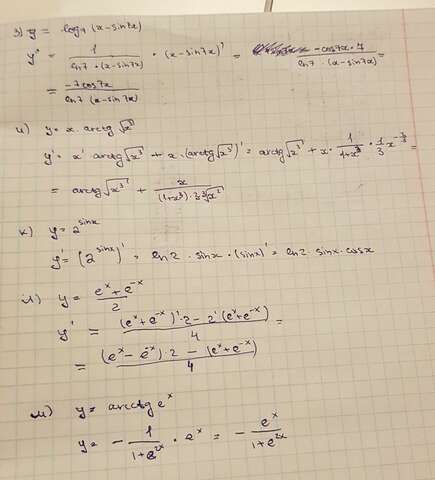 з) y = log₇ (x - sin7x)
y' = 1 / (ln7 · (x - sin7x)) · (x - sin7x)' = -cos7x · 7 / (ln7 · (x - sin7x)) =
= -7cos7x / (ln7 (x - sin7x))
и) y = x · arctg √x³
y' = x' · arctg √x³ + x · (arctg √x³)' = arctg √x³ + x · 1/(1+x³) · 1/3 x^(-2/3) =
= arctg √x³ + x / ((1+x³) · 3 ∛x²)
к) y = 2^sinx
y' = (2^sinx)' = ln2 · sinx · (sinx)' = ln2 · sinx · cosx
л) y = (eˣ + e⁻ˣ) / 2
y' = ((eˣ + e⁻ˣ)' · 2 - 2' (eˣ + e⁻ˣ)) / 4 =
= ((eˣ - e⁻ˣ) · 2 - (eˣ + e⁻ˣ)) / 4
м) y = arcctg eˣ
y = - 1/(1+e²ˣ) · eˣ = - eˣ/(1+e²ˣ)